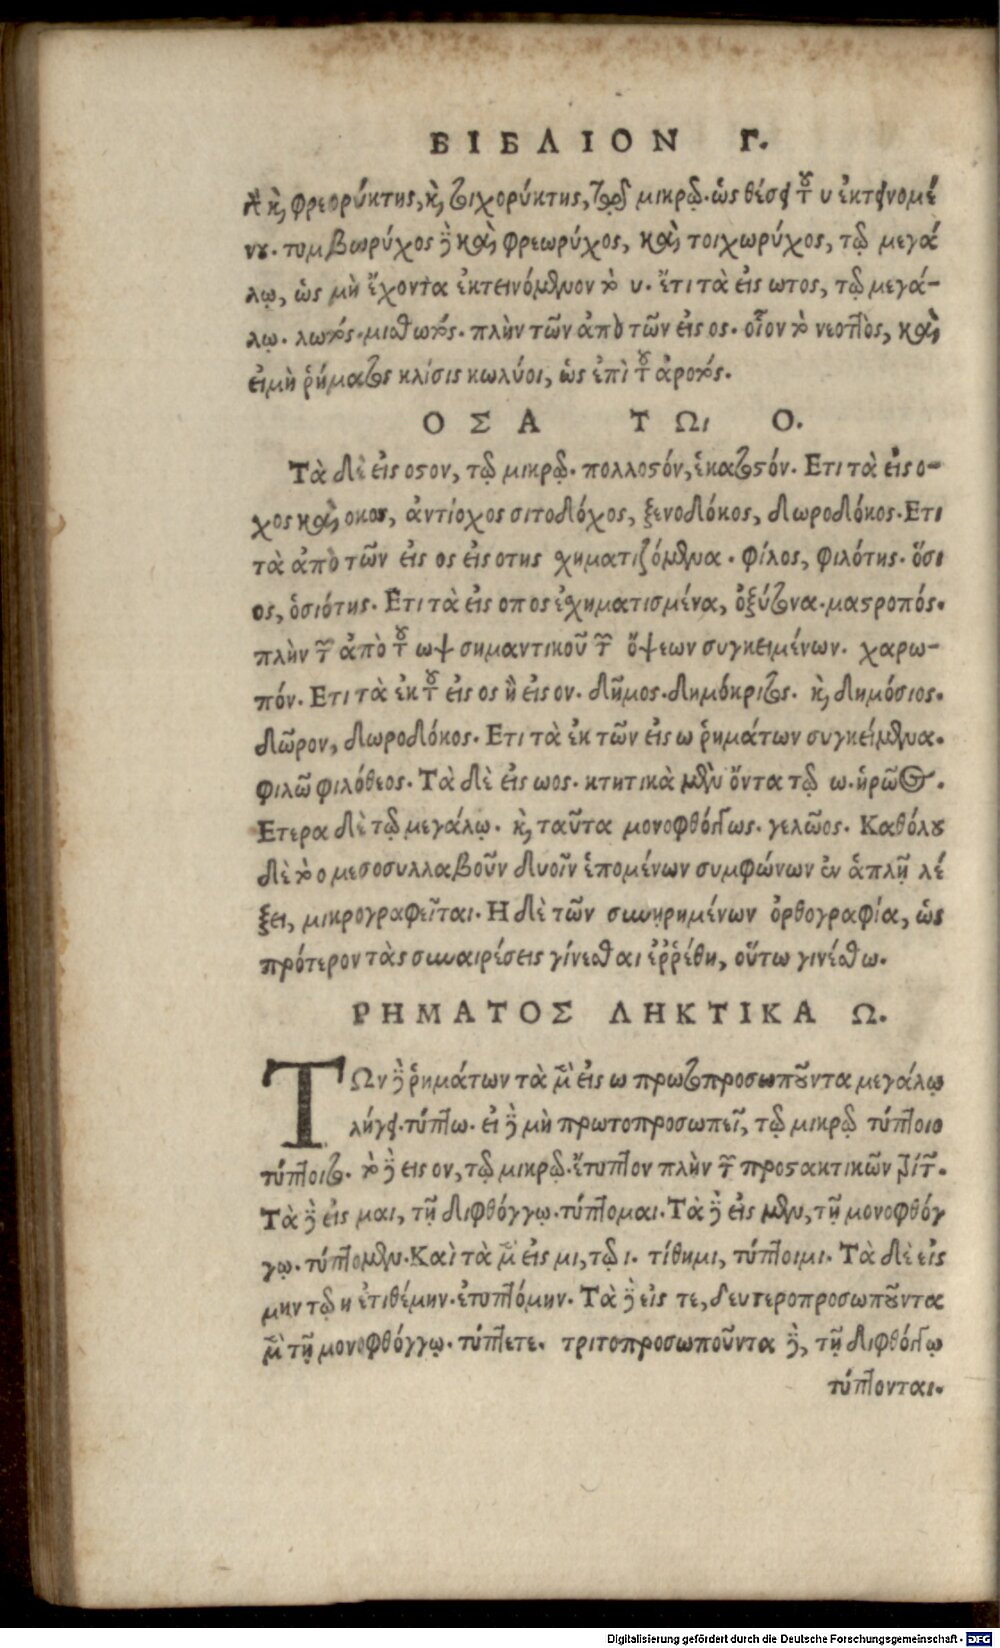 ΒΙΒΛΙΟΝ Γ.
κὶ φρεορύκτης, κὶ τοιχορύκτης, τῷ μικρῷ. ὡς θέσει τοῦ υ ἐκτεινομέ
νου. τυμβωρύχος δὲ καὶ φρεωρύχος, καὶ τοιχωρύχος, τῷ μεγά
λῳ, ὡς μὴ ἔχοντα ἐκτεινόμενον τὸ υ. ἔτι τὰ εἰς ωτος, τῷ μεγά-
λῳ. λωτός. μισθωτός. πλὴν τῶν ἀπὸ τῶν εἰς ος. οἷον τὸ νεοττὸς, καὶ
εἰ μὴ ῥήματος κλίσις κωλύοι, ὡς ἐπὶ τοῦ ἀροτός.
ΟΣΑ ΤΩΙ Ο.
Τὰ δὲ εἰς οστον, τῷ μικρῷ. πολλοστόν, ἑκατοστόν. Ετι τὰ εἰς ο-
χος καὶ οκος, ἀντίοχος σιτοδόχος, ξενοδόκος, δωροδόκος. Ετι
τὰ ἀπὸ τῶν εἰς ος εἰς οτης σχηματιζόμενα. φίλος, φιλότης. ὅσι
ος, ὁσιότης. Ετι τὰ εἰς οπος ἐσχηματισμένα, ὀξύτονα. μαστροπός.
πλὴν τῶν ἀπὸ τοῦ ωψ σημαντικοῦ τῶν ὄψεων συγκειμένων. χαρω-
πόν. Ετι τὰ ἐκ τοῦ εἰς ος ἢ εἰς ον. δῆμος. δημόκριτος. κὶ δημόσιος.
δῶρον, δωροδόκος. Ετι τὰ ἐκ τῶν εἰς ω ῥημάτων συγκείμενα.
φιλῶ φιλόθεος. Τὰ δὲ εἰς ωος. κτητικὰ μὲν ὄντα τῷ ω. ἡρῶος.
Ετερα δὲ τῷ μεγάλῳ. κὶ ταῦτα μονοφθόγγως. γελῶος. Καθόλου
δὲ τὸ ο μεσοσυλλαβοῦν δυοῖν ἑπομένων συμφώνων ἐν ἁπλῇ λέ
ξει, μικρογραφεῖται. Η δὲ τῶν συνῃρημένων ὀρθογραφία, ὡς
πρότερον τὰς συναιρέσεις γίνεσθαι ἐῤῥέθη, οὕτω γινέσθω.
ΡΗΜΑΤΟΣ ΛΗΚΤΙΚΑ Ω.
ΤΩν δὲ ῥημάτων τὰ μὲν εἰς ω πρωτοπροσωποῦντα μεγάλῳ
λήγει. τύπτω. εἰ δὲ μὴ πρωτοπροσωπεῖ, τῷ μικρῷ τύπτοιο
τύπτοιτο. τὸ δὲ εἰς ον, τῷ μικρῷ. ἔτυπτον πλὴν τῶν προστακτικῶν τρίτων.
Τὰ δὲ εἰς μαι, τῇ διφθόγγῳ. τύπτομαι. Τὰ δὲ εἰς μεν, τῇ μονοφθόγ
γῳ. τύπτομεν. Καὶ τὰ μὲν εἰς μι, τῷ ι. τίθημι, τύπτοιμι. Τὰ δὲ εἰς
μην τῷ η ἐτιθέμην. ἐτυπτόμην. Τὰ δὲ εἰς τε, δευτεροπροσωποῦντα
μὲν τῇ μονοφθόγγῳ. τύπτετε. τριτοπροσωποῦντα δὲ, τῇ διφθόγγῳ
τύπτονται.
Digitalisierung gefördert durch die Deutsche Forschungsgemeinschaft - DFG